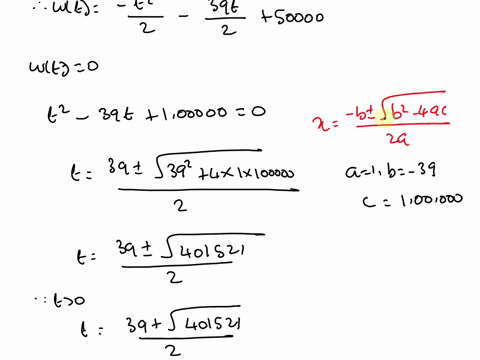 ∴ w(t) = -t²/2 - 39t/2 + 50000
w(t) = 0
t² - 39t + 1,00000 = 0
x = (-b ± √(b² - 4ac))/2a
t = (39 ± √(39² + 4×1×100000))/2
a=1, b=-39
c = 1,00,000
t = (39 ± √401521)/2
∵ t>0
t = (39 + √401521)/2